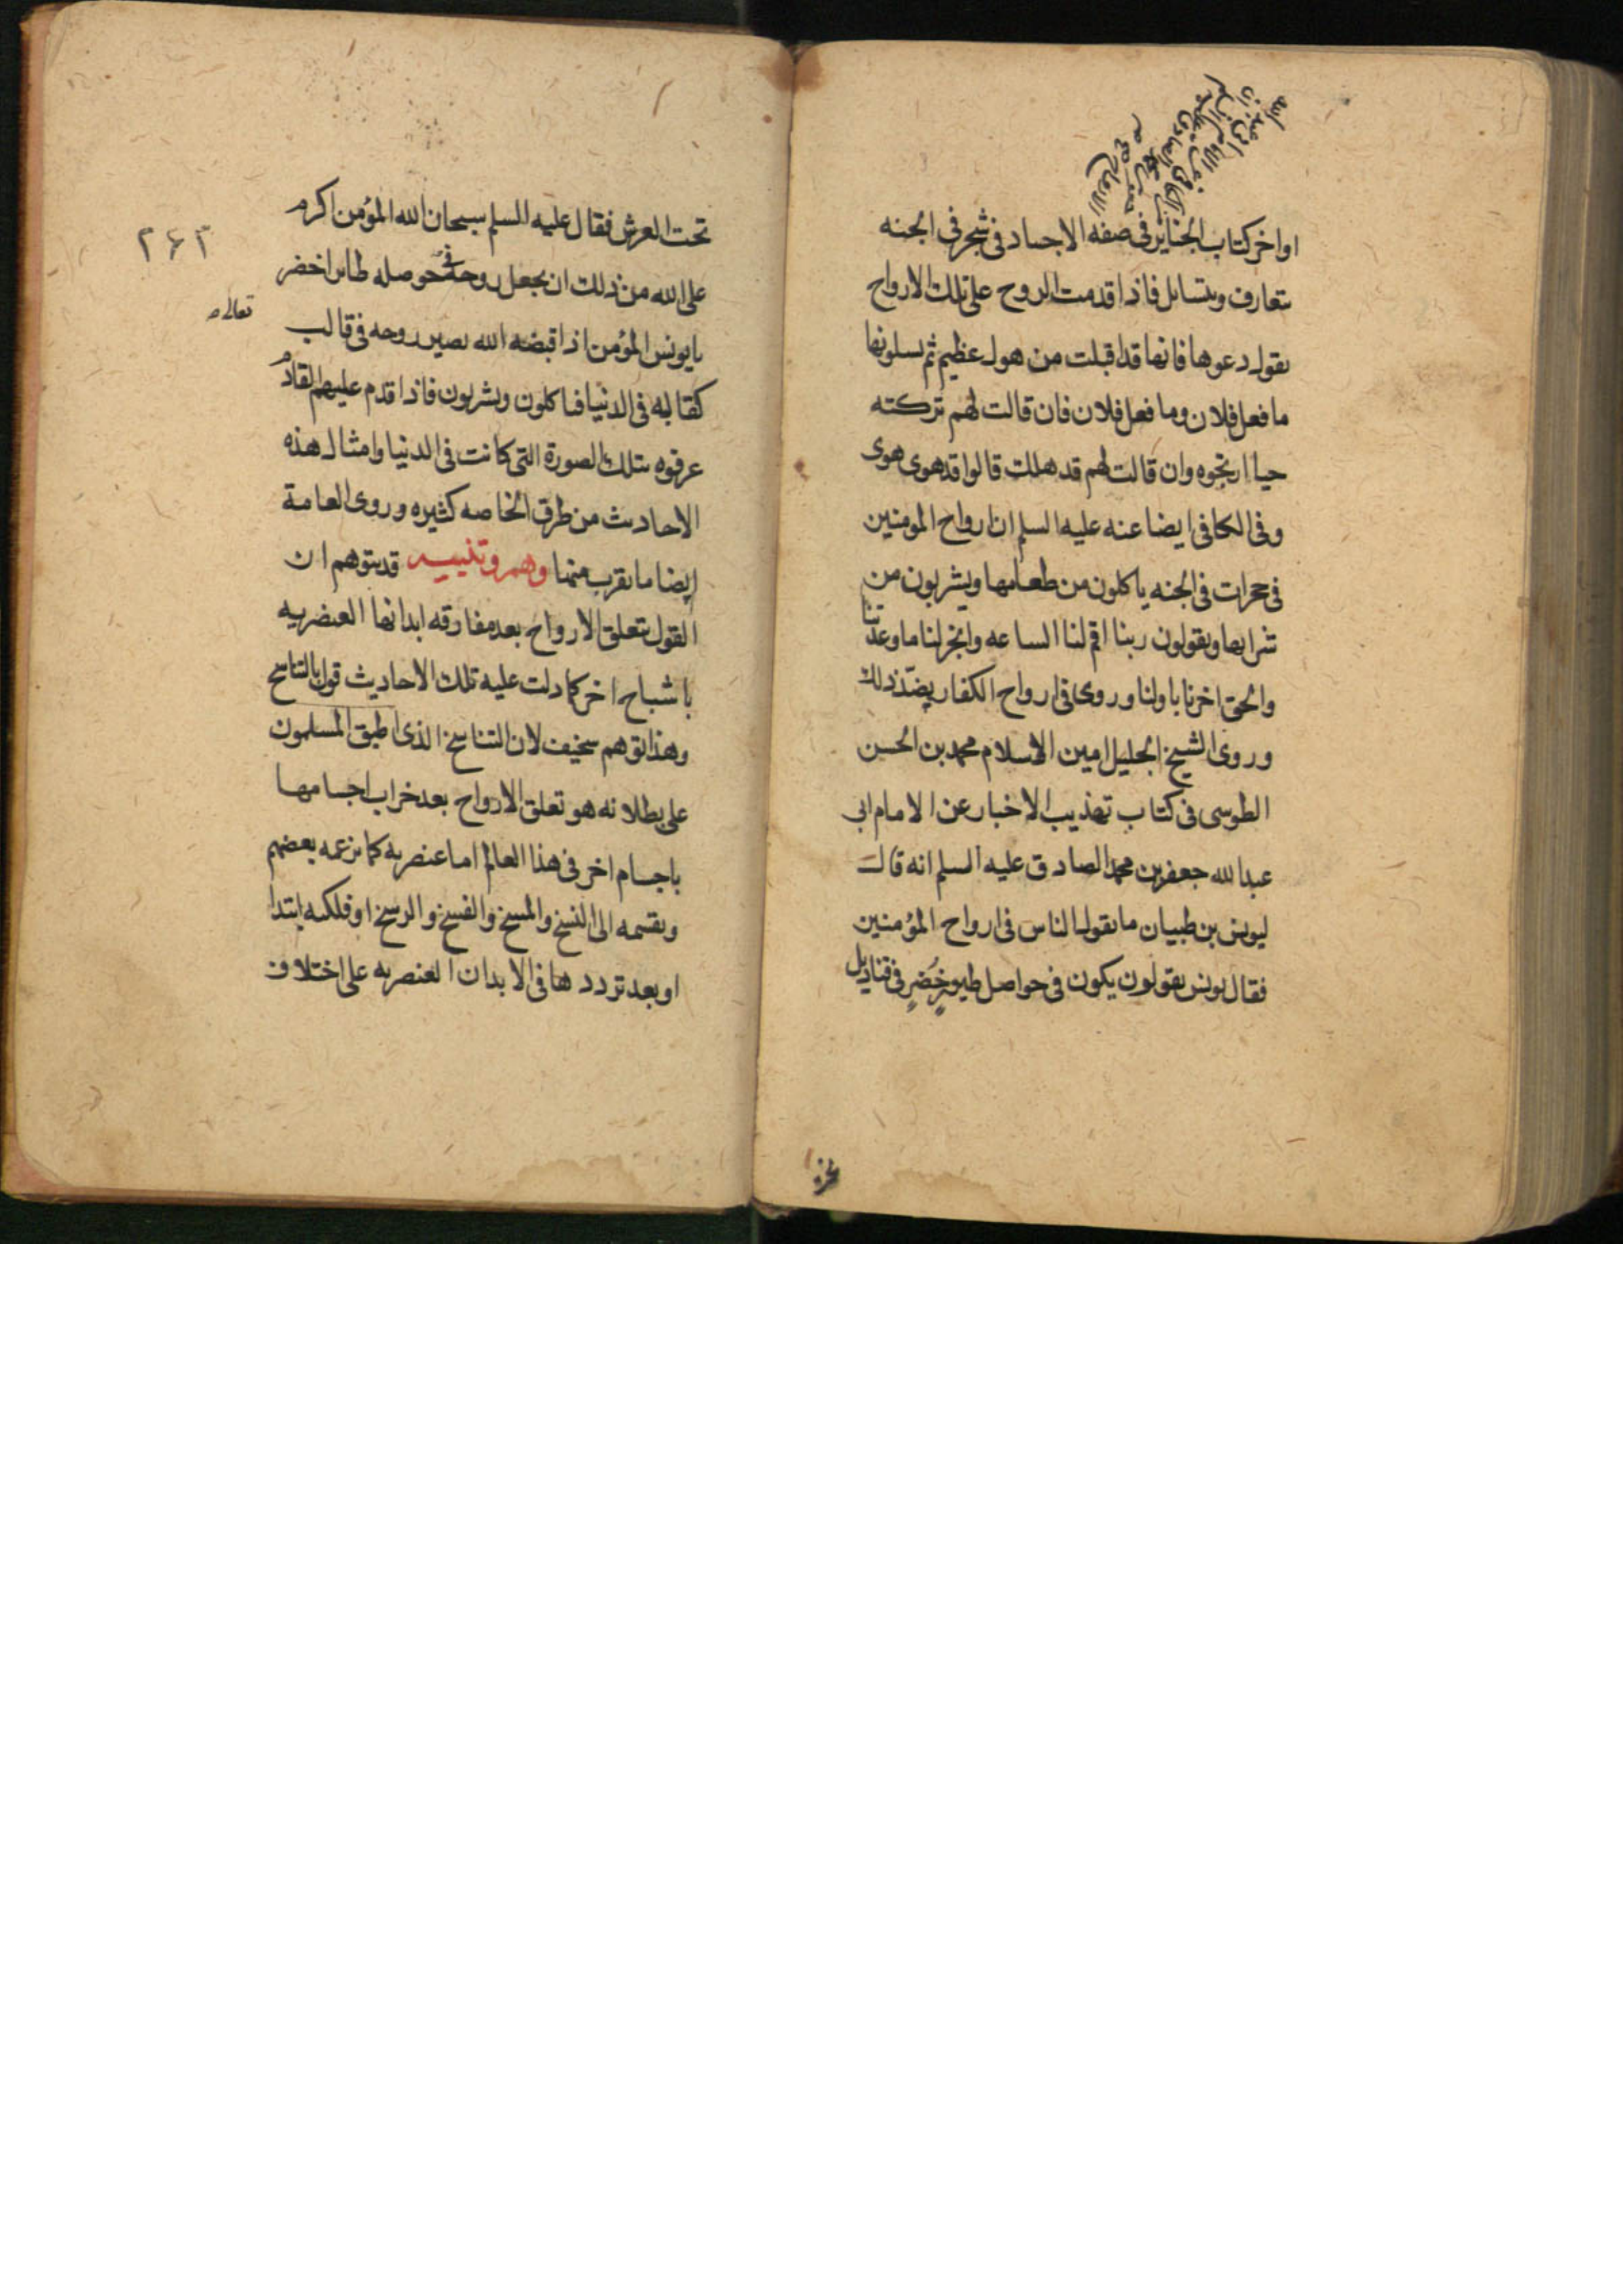 اواخر كتاب الجنايز فى صفه الاجساد فى شجر فى الجنه
تتعارف وتتسائل فاذا قدمت الروح على تلك الارواح
يقول دعوها فانها قد اقبلت من هول عظيم ثم يسلونها
ما فعل فلان وما فعل فلان فان قالت لهم تركته
حيا ارتجوه وان قالت لهم قد هلك قالوا قد هوى هوى
وفى الكافى ايضا عنه عليه السلم ان ارواح المومنين
فى حجرات فى الجنه ياكلون من طعامها ويشربون من
شرابها ويقولون ربنا اقم لنا الساعه وانجز لنا ما وعدتنا
والحق اخرنا باولنا وروى فى ارواح الكفار بضد ذلك
وروى الشيخ الجليل امين الاسلام محمد بن الحسن
الطوسى فى كتاب تهذيب الاخبار عن الامام ابى
عبد الله جعفر بن محمد الصادق عليه السلم انه قال
ليونس بن ظبيان ما يقول الناس فى ارواح المؤمنين
فقال يونس يقولون يكون فى حواصل طيور خُضرٍ فى قناديل
تحت العرش فقال عليه السلم سبحان الله المؤمن اكرم
على الله من ذلك ان يجعل روحه فى حوصله طائر اخضر
يا يونس المؤمن اذا قبضه الله تعالى صير روحه فى قالب
كقالبه فى الدنيا فياكلون ويشربون فاذا قدم عليهم القادم
عرفوه بتلك الصورة التى كانت فى الدنيا وامثال هذه
الاحاديث من طرق الخاصه كثيره وروى العامة
ايضا ما يقرب منها وهم وتنبيه قد يتوهم ان
القول بتعلق الارواح بعد مفارقه ابدانها العنصريه
باشباح اخر كما دلت عليه تلك الاحاديث قول بالتناسخ
وهذا توهم سخيف لان التناسخ الذى اطبق المسلمون
على بطلانه هو تعلق الارواح بعد خراب اجسامها
باجسام اخر فى هذا العالم اما عنصريه كما يزعمه بعضهم
ويقسمه الى النسخ والمسخ والفسخ والرسخ او فلكيه ابتدا
او بعد ترددها فى الابدان العنصريه على اختلاف
۲۶۳